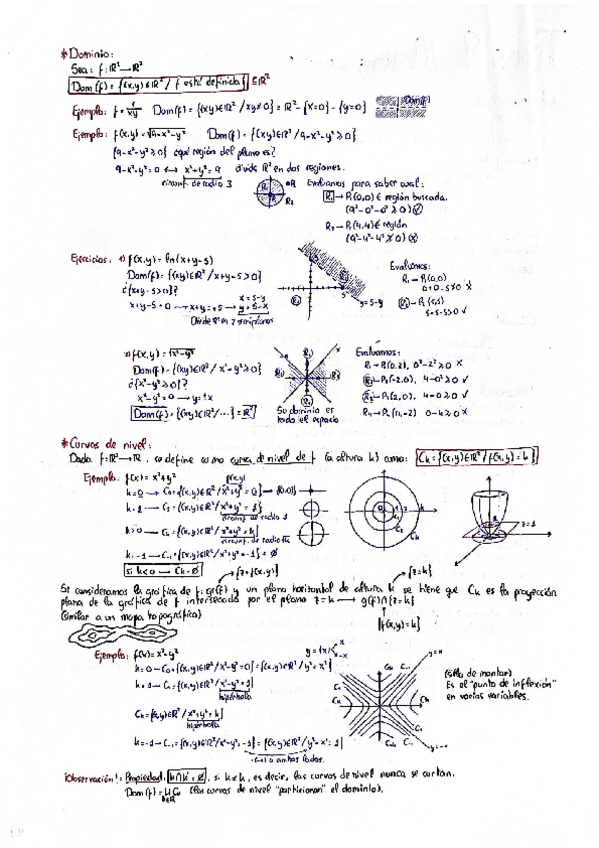 * Dominio:
Sea: f: ℝ² → ℝ²
Dom(f) = {(x,y)∈ℝ² / f está definida} ⊆ ℝ²
Ejemplo: f = 1/xy Dom(f) = {(x,y)∈ℝ² / xy≠0} = ℝ² - {x=0} - {y=0} Dom(f)
Ejemplo: f(x,y) = √9-x²-y² Dom(f) = {(x,y)∈ℝ² / 9-x²-y² ≥ 0}
{9-x²-y² ≥ 0} ¿qué región del plano es?
9-x²-y²=0 ↔ x²+y²=9 divide ℝ² en dos regiones.
circunf. de radio 3
Evaluamos para saber cual:
R₁ → P₁(0,0) ∈ región buscada.
(9²-0²-0² ≥ 0) ✓
R₂ → P₂(4,4) ∉ región
(9²-4²-4² ≥ 0) x
Ejercicios: 1) f(x,y) = ln(x+y-5)
Dom(f) = {(x,y)∈ℝ² / x+y-5>0}
¿{x+y-5>0}?
x+y-5=0 → x+y=5 → x=5-y
y=5-x
Divide ℝ² en 2 semiplanos
y=5-x
Evaluamos:
R₁ → P₁(0,0)
0+0-5≥0 x
R₂ → P₂(5,5)
5+5-5>0 ✓
2) f(x,y) = √x²-y²
Dom(f) = {(x,y)∈ℝ² / x²-y² ≥ 0}
¿{x²-y² ≥ 0}?
x²-y²=0 → y=±x
Dom(f) = {(x,y)∈ℝ² / ...} = ℝ²
Su dominio es
todo el espacio
Evaluamos:
R₁ → P₁(0,2), 0²-2² ≥ 0 x
R₂ → P₂(-2,0), 4-0² ≥ 0 ✓
R₃ → P₃(2,0), 4-0 ≥ 0 ✓
R₄ → P₄(0,-2) 0-4 ≥ 0 x
* Curvas de nivel:
Dada f: ℝ² → ℝ, se define como curva de nivel de f (a altura k) como: Cₖ = {(x,y)∈ℝ² / f(x,y) = k}
Ejemplo: f(x) = x²+y²
f(x,y)
k=0 → C₀ = {(x,y)∈ℝ² / x²+y² = 0} → {(0,0)}
k=1 → C₁ = {(x,y)∈ℝ² / x²+y² = 1}
circunf. de radio 1
k>0 → Cₖ = {(x,y)∈ℝ² / x²+y² = k}
circunf. de radio √k
k=-1 → C₋₁ = {(x,y)∈ℝ² / x²+y² = -1} = ∅
si k<0 → Cₖ = ∅
z=1
{z=f(x,y)}
{z=k}
Si consideramos la gráfica de f: gr(f) y un plano horizontal de altura k se tiene que Cₖ es la proyección
plana de la gráfica de f intersecada por el plano z=k → g(f)∩{z=k}
(similar a un mapa topográfico)
{f(x,y)=k}
Ejemplo: f(x) = x²-y²
y=±x
x
-x
k=0 → C₀ = {(x,y)∈ℝ² / x²-y²=0} = {(x,y)∈ℝ² / y²=x²}
k=1 → C₁ = {(x,y)∈ℝ² / x²-y²=1}
hipérbola
Cₖ = {(x,y)∈ℝ² / x²-y²=k}
hipérbola
k=-1 → C₋₁ = {(x,y)∈ℝ² / x²-y²=-1} = {(x,y)∈ℝ² / y²-x²=1}
·(-1) a ambos lados.
y=x
y=-x
(Silla de montar)
Es el "punto de inflexión"
en varias variables.
¡Observación!: Propiedad: k∩k' = ∅, si k≠k', es decir, las curvas de nivel nunca se cortan.
Dom(f) = ∪ Cₖ (las curvas de nivel "particionan" el dominio).
k∈ℝ